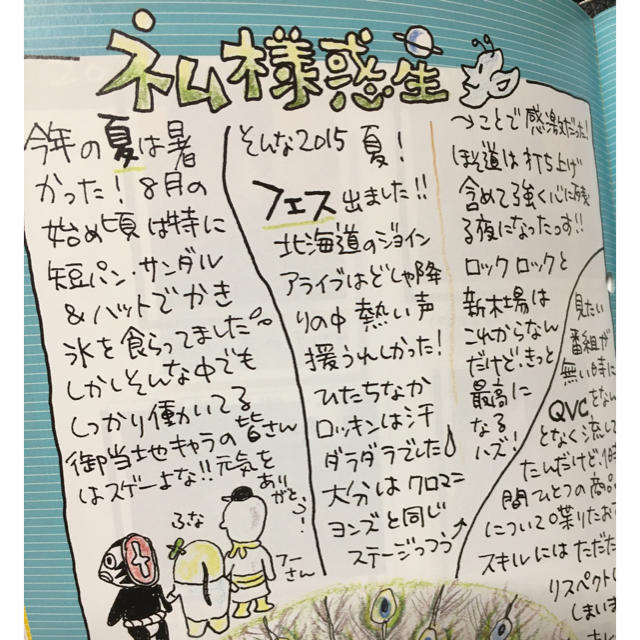 ネム様惑星
今年の夏は暑
かった！8月の
始め頃は特に
短パン・サンダル
&ハットでかき
氷を食らってました。
しかしそんな中でも
しっかり働いてる
御当地キャラの皆さん
はスゲーよな!!元気を
ありがとう！
ふな
フー
さん
そんな2015 夏！
フェス出ました!!
北海道のジョイン
アライブはどしゃ降
りの中 熱い声
援うれしかった！
ひたちなか
ロッキンは汗
ダラダラでした
大分はクロマニ
ヨンズと同じ
ステージっつう
→ことで感激だった！
ほん道は打ち上げ
含めてる強く心に残
る夜になったっす!!
ロックロックと
新木場は
これからなん
だけど、きっと
最高に
なる
ハズ！
見たい
番組が
無い時に
QVCをなん
となく流して
たんだけど、1時
間ひとつの商品
について喋りたお
スキルにはただた
リスペクト
しまいま